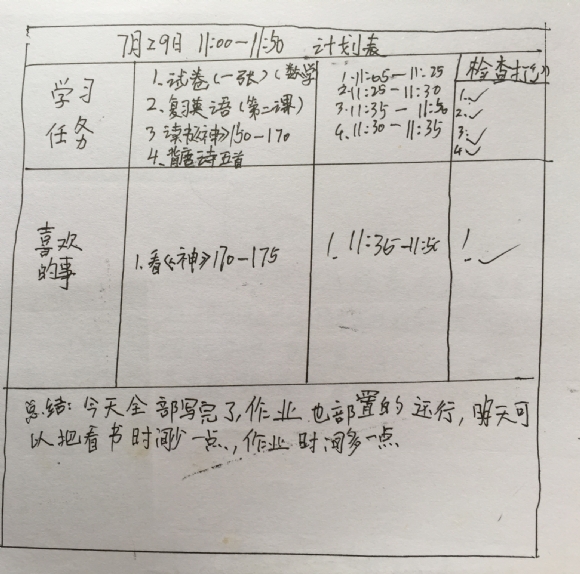 7月29日 11:00—11:50 计划表
学习任务
1.试卷(一张)(数学
2.复习英语(第二课)
3.读书《神》150—170
4.背唐诗五首
1.11:05—11:25
2.11:25—11:30
3.11:35—11:50
4.11:30—11:35
检查打(√)
1.✓
2.✓
3.✓
4.✓
喜欢的事
1.看《神》170—175
1.11:35—11:50
1.✓
总结:今天全部写完了,作业也部置的 运行,明天可
以把看书时间少一点,作业时间多一点